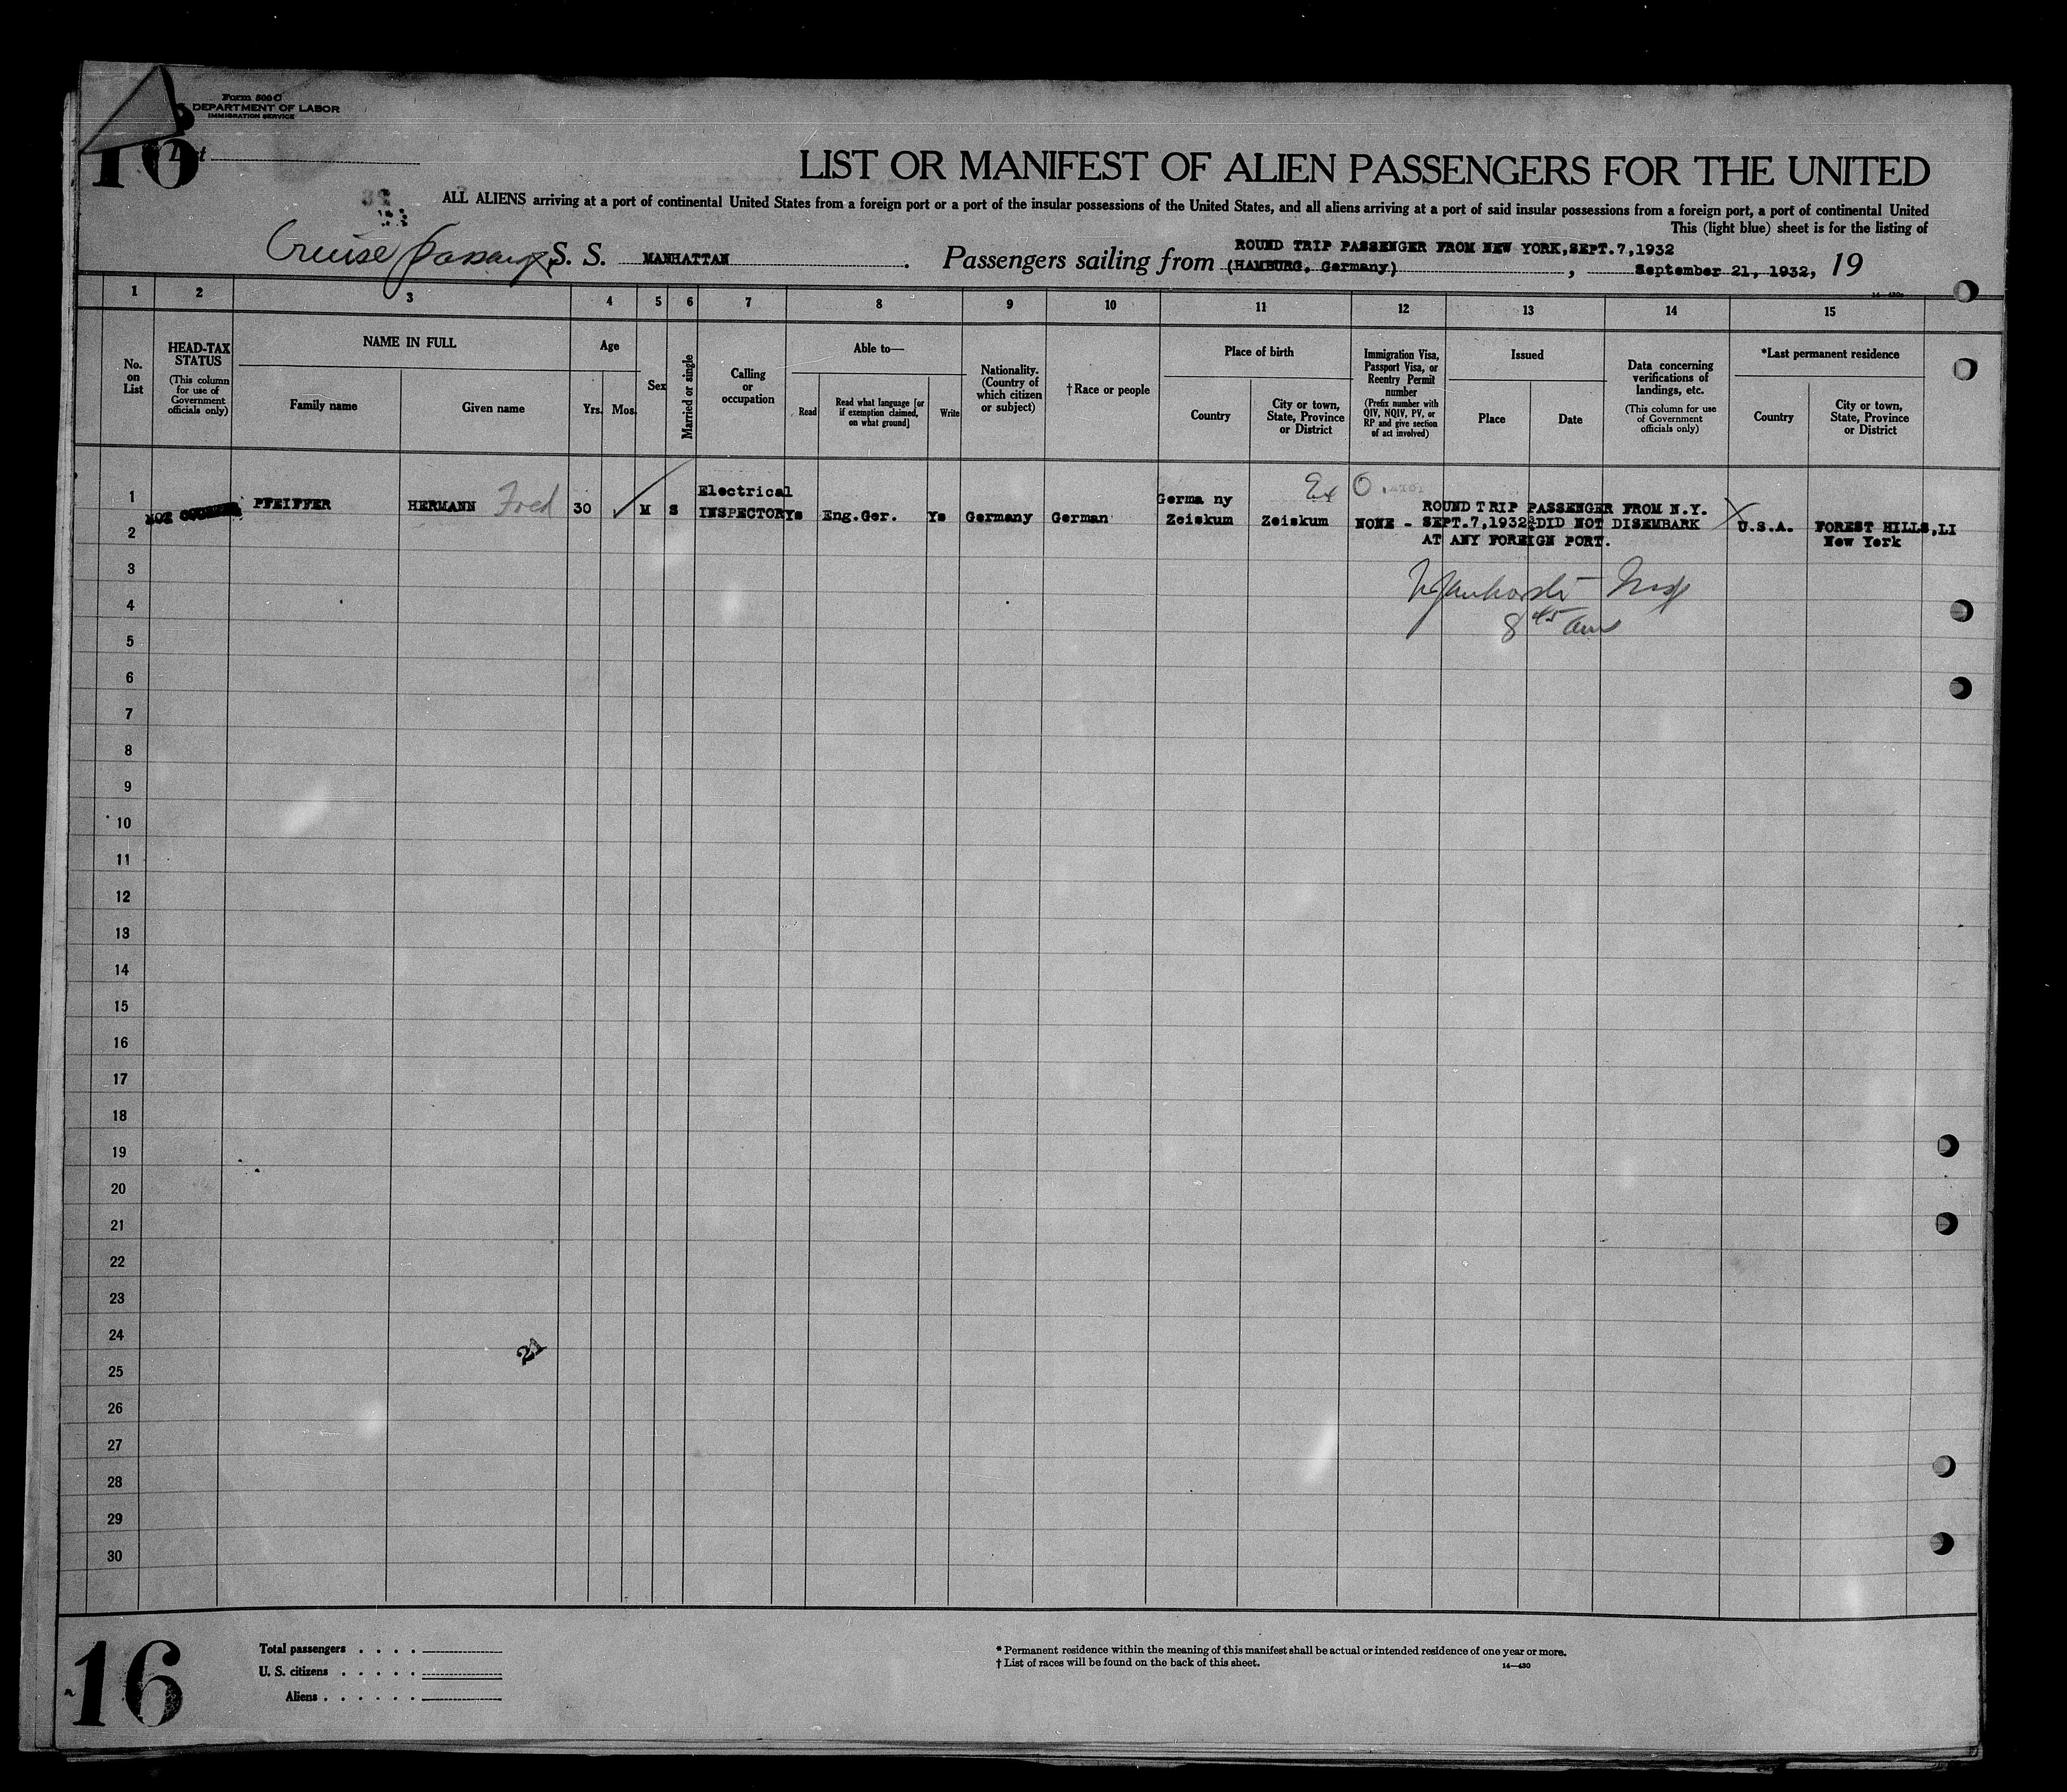 Form 500 C
DEPARTMENT OF LABOR
IMMIGRATION SERVICE
16
List
LIST OR MANIFEST OF ALIEN PASSENGERS FOR THE UNITED
ALL ALIENS arriving at a port of continental United States from a foreign port or a port of the insular possessions of the United States, and all aliens arriving at a port of said insular possessions from a foreign port, a port of continental United
This (light blue) sheet is for the listing of
ROUND TRIP PASSENGER FROM NEW YORK,SEPT.7,1932
Cruise S. S. MANHATTAN. Passengers sailing from (HAMBURG, Germany), September 21, 1932, 19
1 2 3 4 5 6 7 8 9 10 11 12 13 14 15
No. on List
HEAD-TAX STATUS
(This column for use of Government officials only)
NAME IN FULL
Family name
Given name
Age
Yrs.
Mos.
Sex
Married or single
Calling or occupation
Able to—
Read
Read what language [or if exemption claimed, on what ground]
Write
Nationality. (Country of which citizen or subject)
†Race or people
Place of birth
Country
City or town, State, Province or District
Immigration Visa, Passport Visa, or Reentry Permit number
(Prefix number with QIV, NQIV, PV, or RP and give section of act involved)
Issued
Place
Date
Data concerning verifications of landings, etc.
(This column for use of Government officials only)
*Last permanent residence
Country
City or town, State, Province or District
1 PFEIFFER HERMANN Fred 30 M S Electrical INSPECTOR Ys Eng.Ger. Ys Germany German Germa ny Zeiskum Zeiskum NONE -
ROUND TRIP PASSENGER FROM N.Y.
SEPT.7,1932 DID NOT DISEMBARK
AT ANY FOREIGN PORT.
U.S.A. FOREST HILLS,LI
New York
8 45 am
2
3
4
5
6
7
8
9
10
11
12
13
14
15
16
17
18
19
20
21
22
23
24
21
25
26
27
28
29
30
16
Total passengers
U. S. citizens
Aliens
* Permanent residence within the meaning of this manifest shall be actual or intended residence of one year or more.
† List of races will be found on the back of this sheet.
14—430